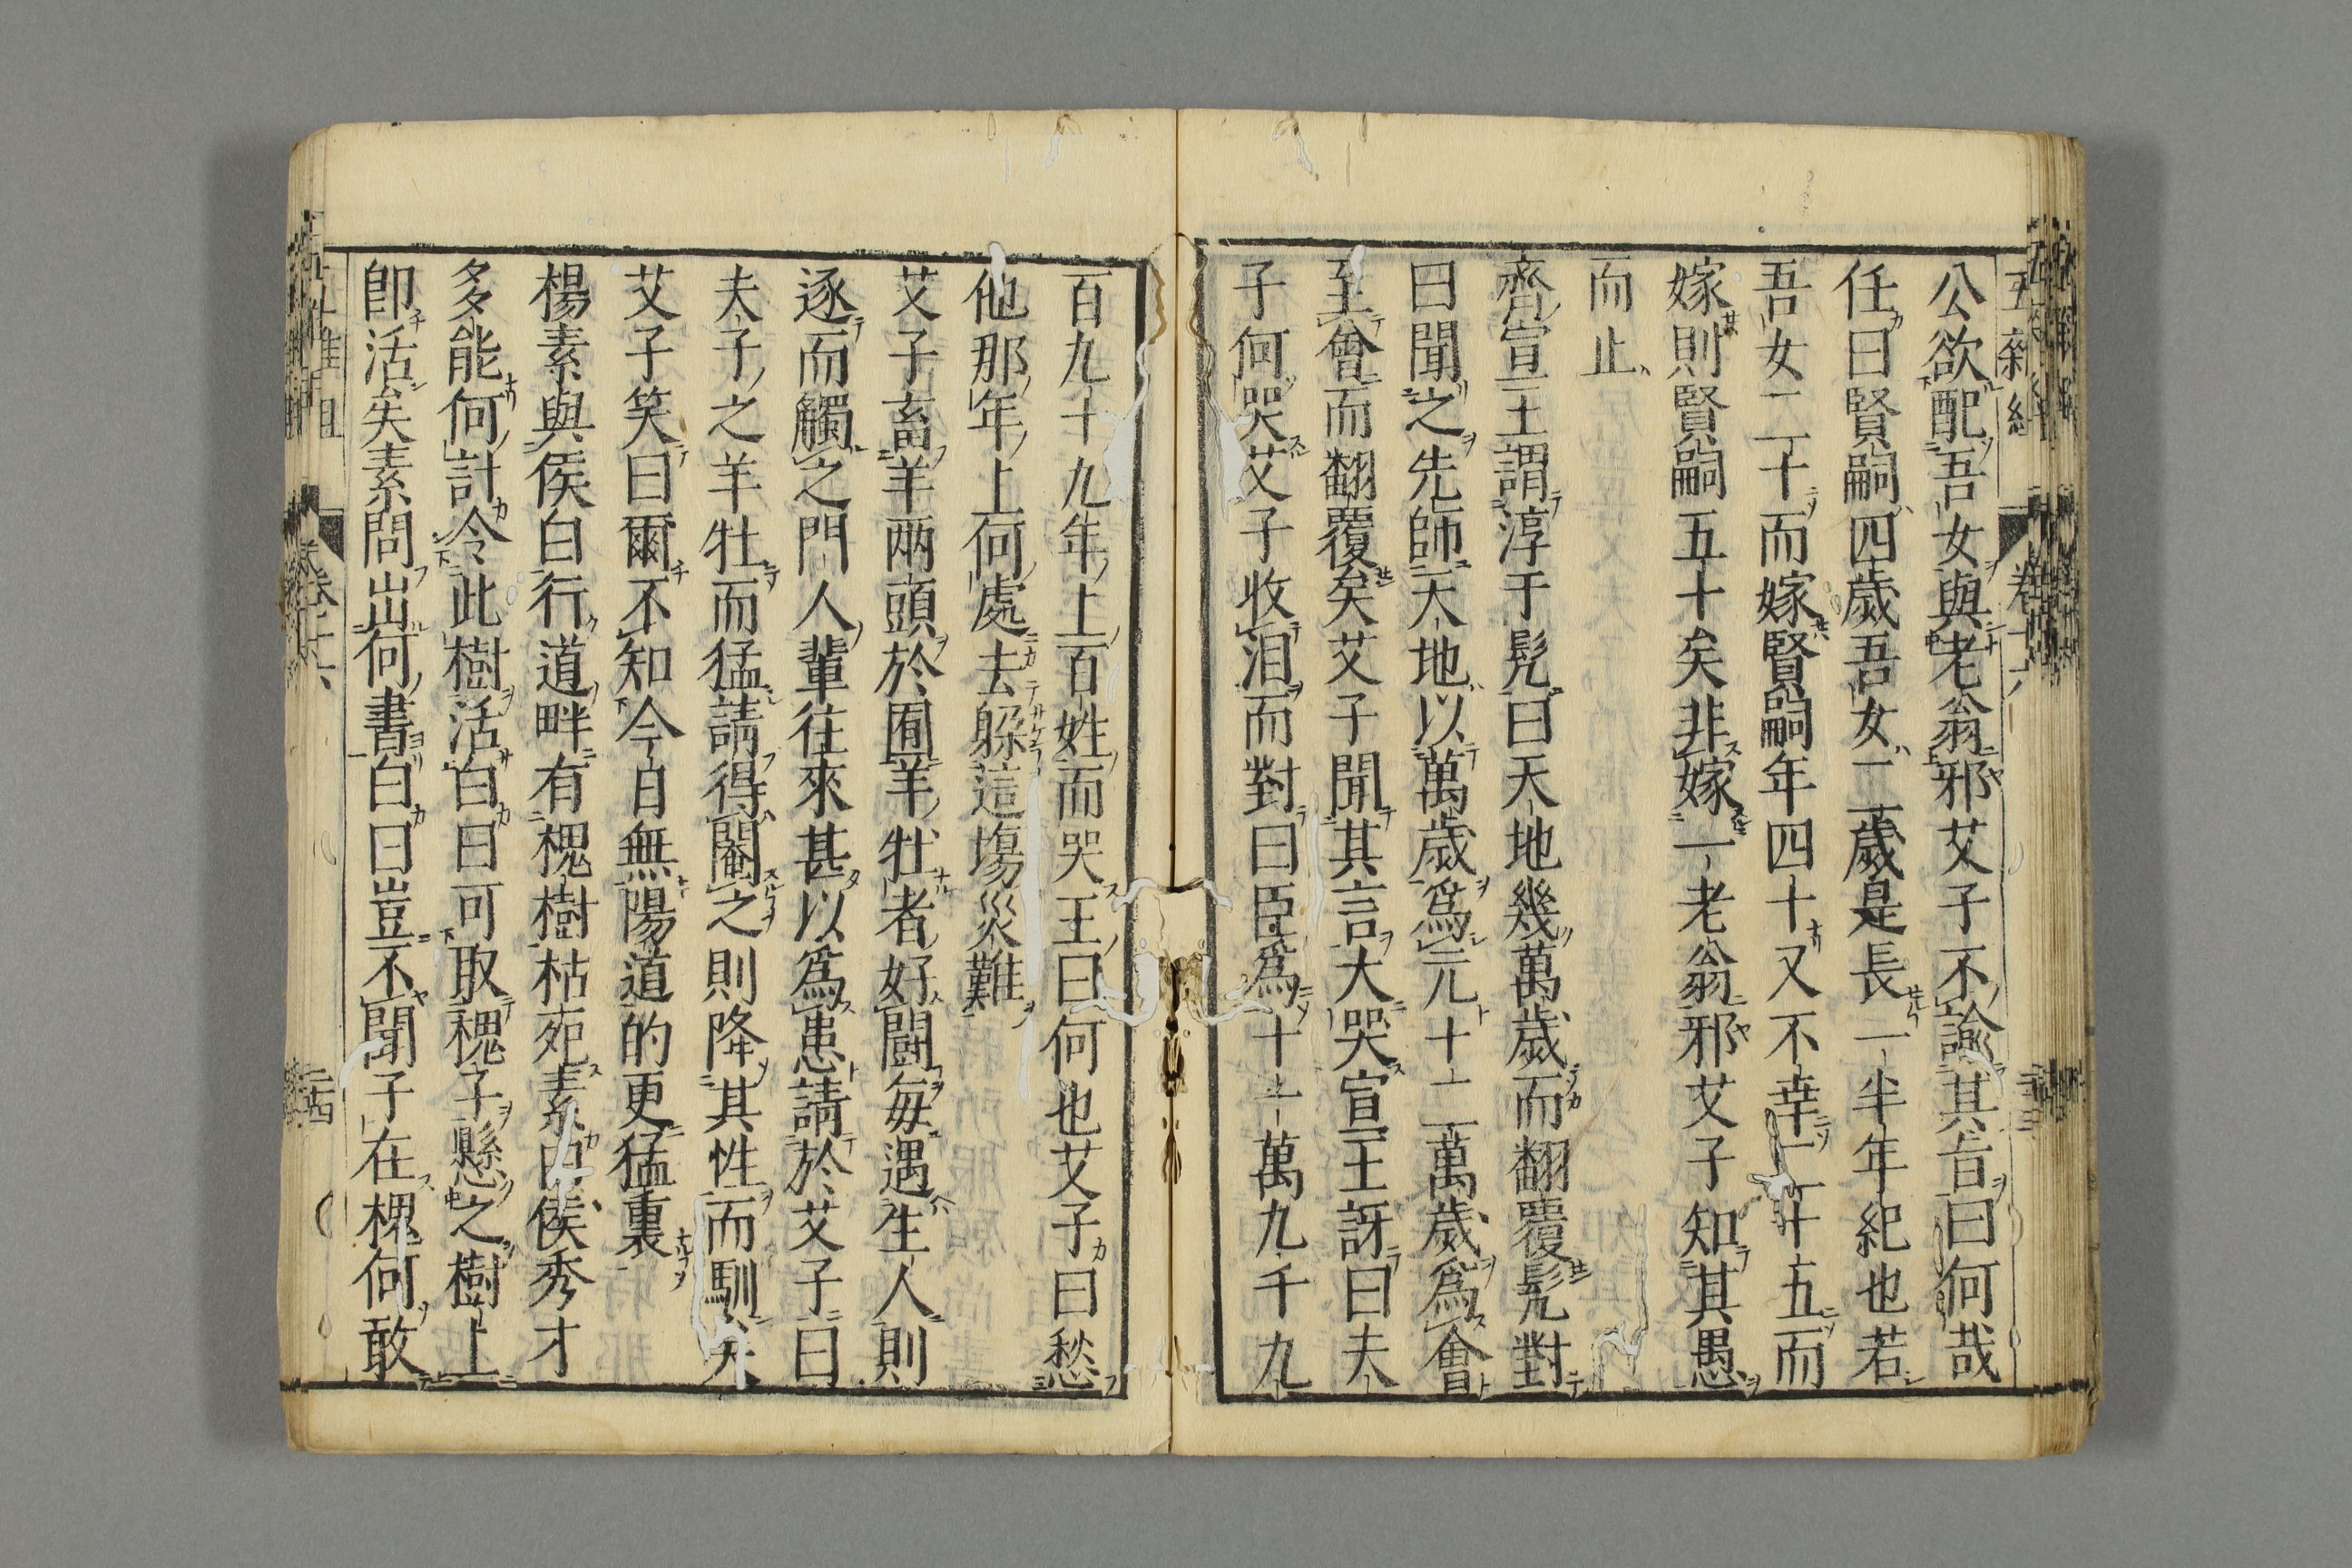 公欲配吾女與老翁邪艾子不諭其旨曰何哉
任曰賢嗣四歲吾女二歲是長一半年紀也若
吾女二十而嫁賢嗣年四十又不幸二十五而
嫁則賢嗣五十矣非嫁一老翁邪艾子知其愚
而止
齊宣王謂淳于髡曰天地幾萬歲而翻覆髡對
曰聞之先師天地以萬歲爲元十二萬歲爲會
至會而翻覆矣艾子聞其言大哭宣王訝曰夫
子何哭艾子收泪而對曰臣爲十一萬九千九
百九十九年上百姓而哭王曰何也艾子曰愁
他那年上何處去躲這場災難
艾子畜羊兩頭於囿羊牡者好鬪每遇生人則
逐而觸之門人輩往來甚以爲患請於艾子曰
夫子之羊牡而猛請得閹之則降其性而馴矣
艾子笑曰爾不知今日無陽道的更猛裏
楊素與侯白行道畔有槐樹枯死素曰侯秀才
多能何計令此樹活白曰可取槐子懸之樹上
卽活矣素問出何書白曰豈不聞子在槐何敢
卷十六